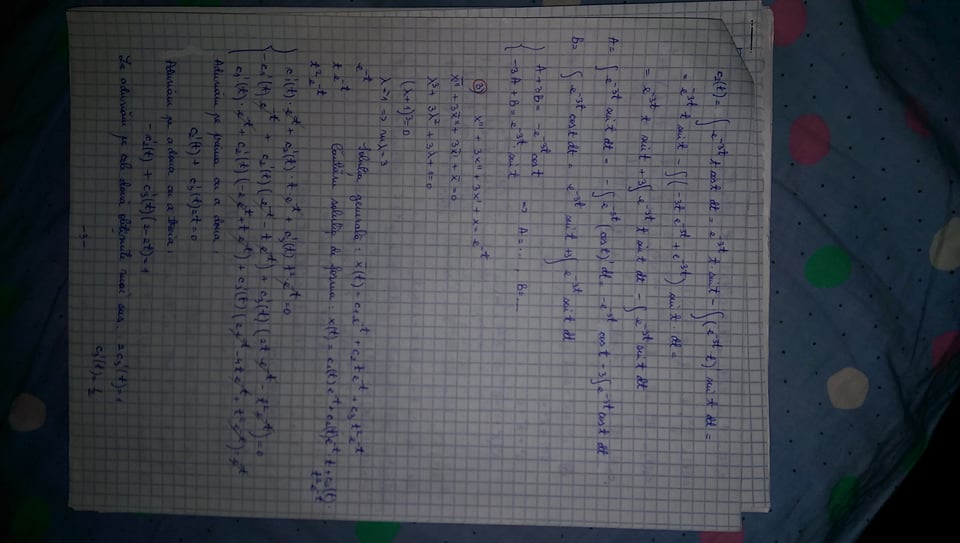 c₂(t) = ∫ e^{-3t} t cos t dt = e^{-3t} t · sin t - ∫ (e^{-3t} t)' sin t dt =
= e^{-3t} t sin t - ∫ (-3t e^{-3t} + e^{-3t}) sin t · dt =
= e^{-3t} t sin t + 3∫ e^{-3t} t sin t dt - ∫ e^{-3t} sin t dt
A = ∫ e^{-3t} sin t dt = - ∫ e^{-3t} (cos t)' dt = -e^{-3t} cos t - 3∫ e^{-3t} cos t dt
B = ∫ e^{-3t} cos t dt = e^{-3t} sin t + 3∫ e^{-3t} sin t dt
{ A + 3B = -e^{-3t} cos t
-3A + B = e^{-3t} · sin t => A = ... , B = ...
③ x''' + 3x'' + 3x' + x = e^{-t}
x̄''' + 3x̄'' + 3x̄' + x̄ = 0
λ³ + 3λ² + 3λ + 1 = 0
(λ+1)³ = 0
λ = -1 => mλ = 3
e^{-t} Soluția generală : x̄(t) = c₁e^{-t} + c₂te^{-t} + c₃t²e^{-t}
te^{-t} Căutăm soluție de forma : x(t) = c₁(t)e^{-t} + c₂(t)e^{-t} · t + c₃(t) ·
t²e^{-t} t²e^{-t}
{ c₁'(t) · e^{-t} + c₂'(t) · t · e^{-t} + c₃'(t) t² · e^{-t} = 0
-c₁'(t) e^{-t} + c₂'(t) (e^{-t} - te^{-t}) + c₃'(t) (2t · e^{-t} - t²e^{-t}) = 0
c₁'(t) · e^{-t} + c₂'(t) (-2e^{-t} + te^{-t}) + c₃'(t) (2e^{-t} - 4te^{-t} + t²e^{-t}) = e^{-t}
Adunăm pe prima cu a doua :
c₂'(t) + c₃'(t) 2t = 0
Adunăm pe a doua cu a treia :
-c₂'(t) + c₃'(t) (2-2t) = 1
Le adunăm pe cele două obținute mai sus. 2c₃'(t) = 1
c₃'(t) = 1/2
-3-